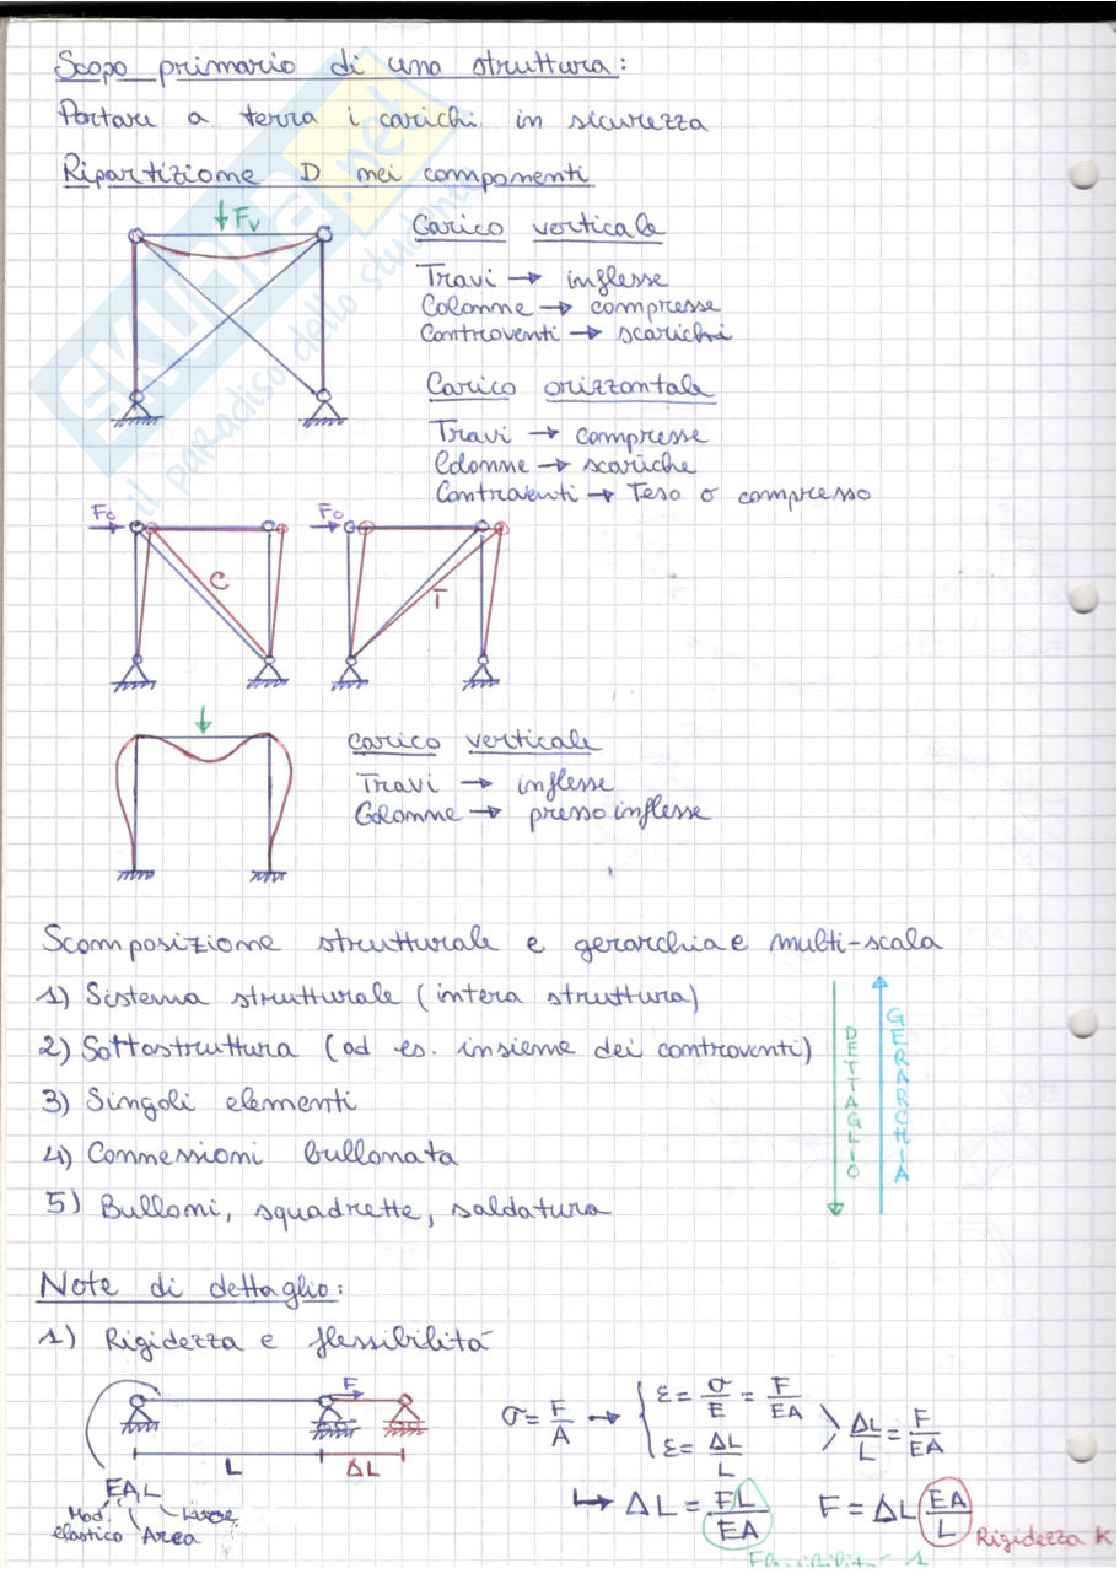 Scopo primario di una struttura:
Portare a terra i carichi in sicurezza
Ripartizione D nei componenti
Fv
Carico verticale
Travi → inflesse
Colonne → compresse
Controventi → scarichi
Carico orizzontale
Travi → compresse
Colonne → scariche
Controventi → Teso o compresso
Fo
C
Fo
T
Carico verticale
Travi → inflesse
Colonne → presso inflesse
Scomposizione strutturale e gerarchia e multi-scala
1) Sistema strutturale (intera struttura)
2) Sottostruttura (ad es. insieme dei controventi)
3) Singoli elementi
4) Connessioni bullonata
5) Bulloni, squadrette, saldatura
DETTAGLIO
GERARCHIA
Note di dettaglio:
1) Rigidezza e flessibilità
F
L
ΔL
EAL
Mod. elastico
Area
σ = F/A → { ε = σ/E = F/EA
ε = ΔL/L
ΔL/L = F/EA
↳ ΔL = FL/EA
F = ΔL EA/L
Rigidezza K
SKUOLA.net
il paradiso dello studente